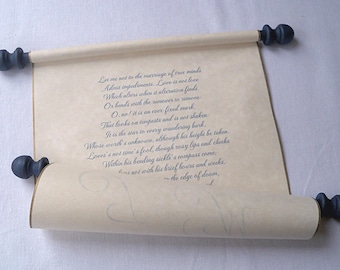 Let me not to the marriage of true minds
Admit impediments. Love is not love
Which alters when it alteration finds,
Or bends with the remover to remove:
O, no! it is an ever-fixed mark,
That looks on tempests and is not shaken;
It is the star to every wandering bark,
Whose worth's unknown, although his height be taken.
Love's not time's fool, though rosy lips and cheeks
Within his bending sickle's compass come;
not with his brief hours and weeks,
the edge of doom,